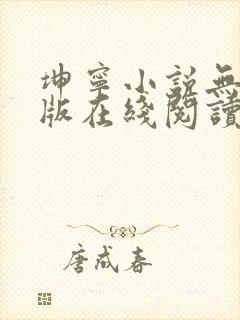 坤寧小説無
版在綫閱讀
唐成春